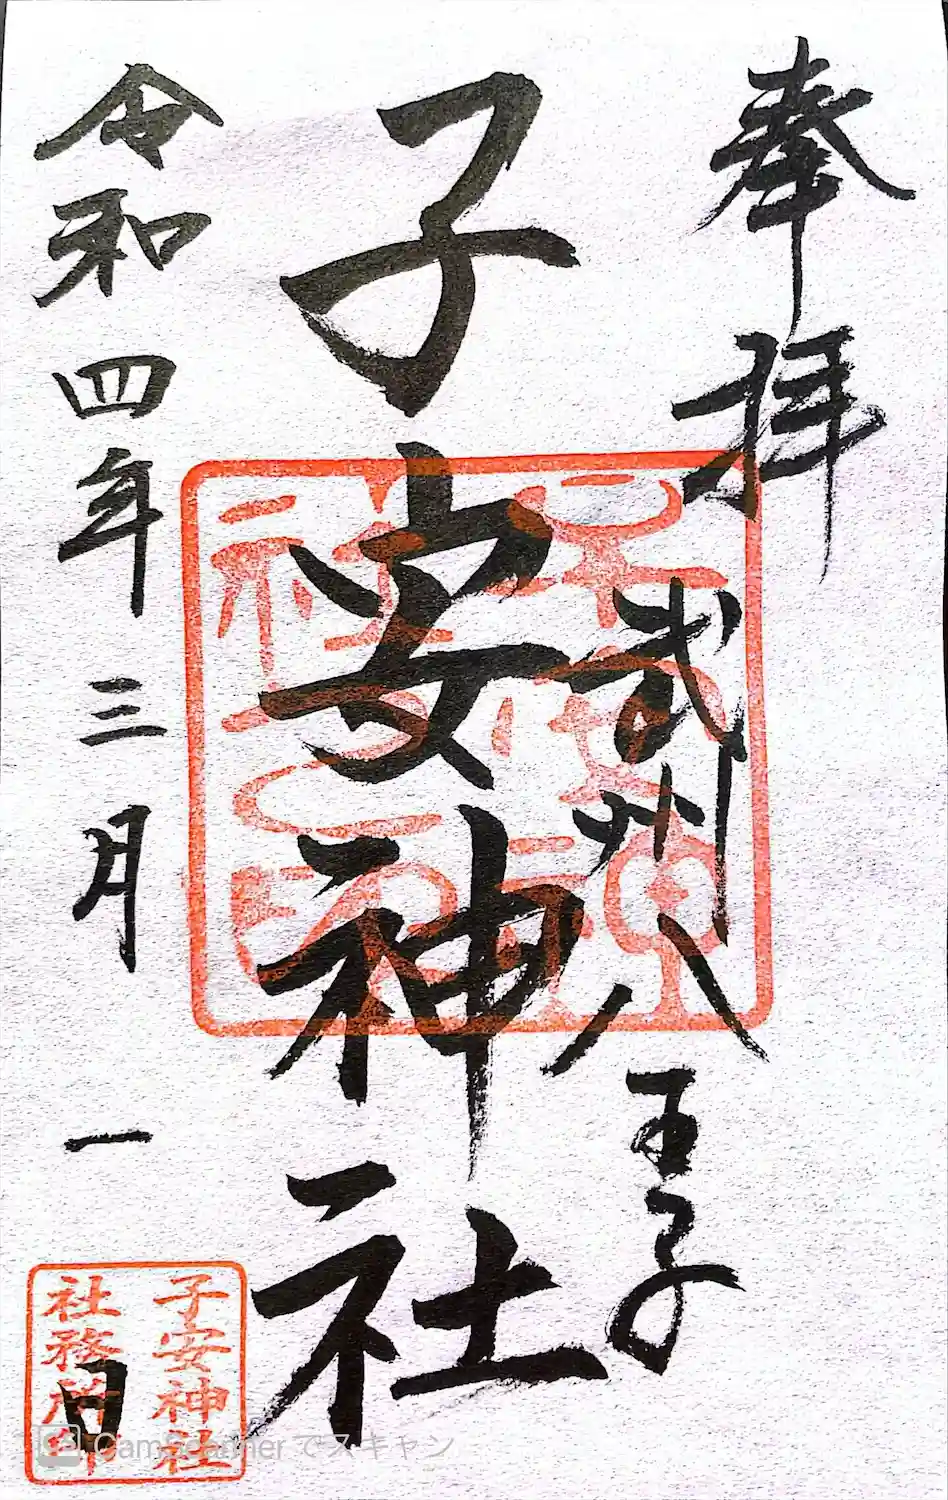 奉拝
武州八王子
子安神社
令和四年三月一日
子安神社
社務所印
CamScannerでスキャン